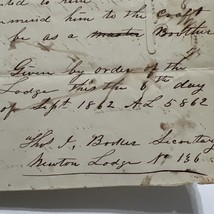 ted to him
mend him to the craft
be as a master Brother
Given by order of the
Lodge this the 6th day
of Sept 1862 A L 5862
Thos J, Booker Secretary
Newton Lodge No 136